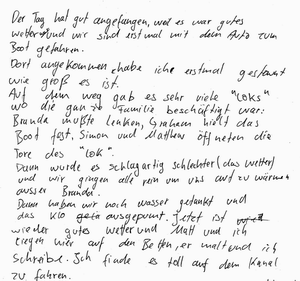 Der Tag hat gut angefangen, weil es war gutes
wetter und wir sind erstmal mit dem Auto zum
Boot gefahren.
Dort angekommen habe ich erstmal gestaunt
wie groß es ist.
Auf dem weg gab es sehr viele "Loks"
wo die ganze Familie beschäftigt war:
Branda mußte lenken, Graham hielt das
Boot fest, Simon und Matthew öffneten die
Tore des "LOK".
Dann wurde es schlagartig schlechter (das wetter)
und wir gingen alle rein um uns auf zu wärmen
ausser Branda.
Dann haben wir noch wasser getankt und
das Klo ausgepumt. Jetzt ist
wieder gutes wetter und Matt und ich
liegen hier auf den Betten, er malt und ich
schreibe. Ich finde es toll auf dem Kanal
zu fahren.